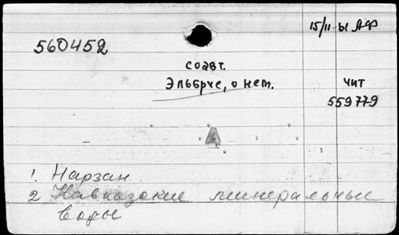 15/II-Ы АФ
560452
соавт.
Эльбрус, о нем.
чит
559779
А
1. Нарзан
2 Кавказские минеральные
воды